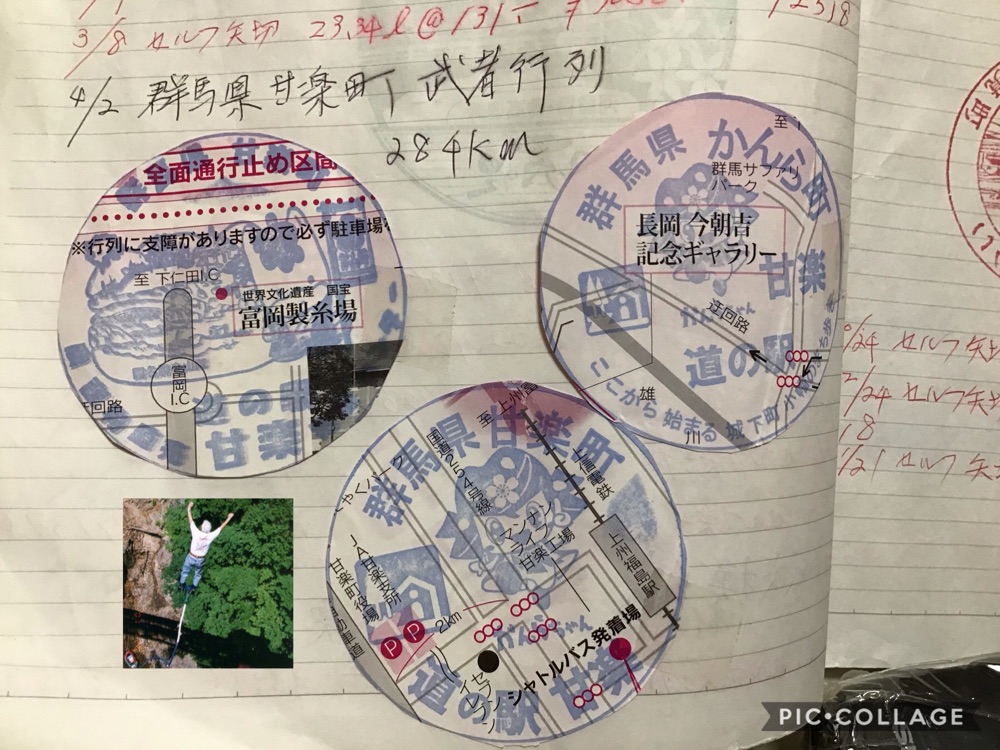 3/8 セルフ矢切 23.34ℓ@131-
4/2 群馬県甘楽町 武者行列
284km
全面通行止め区間
※行列に支障がありますので必ず駐車場
至 下仁田I.C
世界文化遺産 国宝
富岡製糸場
富岡I.C
迂回路
道の駅
甘楽
群馬県 かんら町
至
群馬サファリパーク
長岡 今朝吉
記念ギャラリー
甘楽
迂回路
道の駅
ここから 始まる 城下町 小幡
雄
川
群馬県甘楽町
至 上州富
国道254号線
上信電鉄
マンナンライフ甘楽工場
上州福島駅
JA甘楽支所
甘楽町役場
動車道
P P
2km
かんらちゃん
シャトルバス発着場
セブンイレブン
道の駅 甘楽
/24 セルフ矢切
2/24 セルフ矢
18
/21 セルフ 矢
PIC•COLLAGE